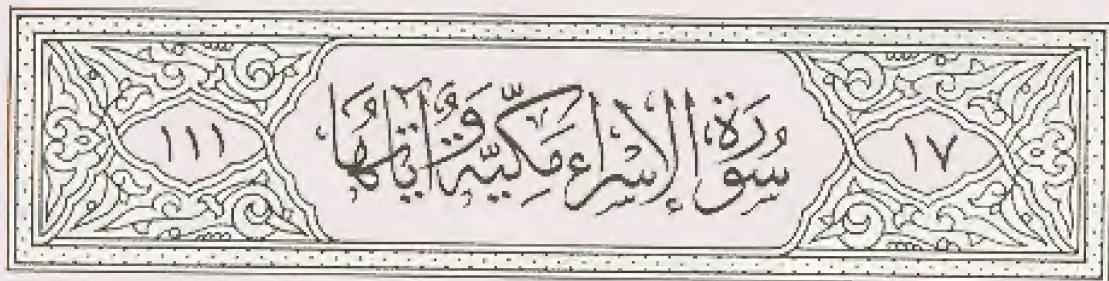 ١٧
سُورَةُ الإِسْرَاءِ مَكِّيَّة وَآيَاتُهَا
١١١